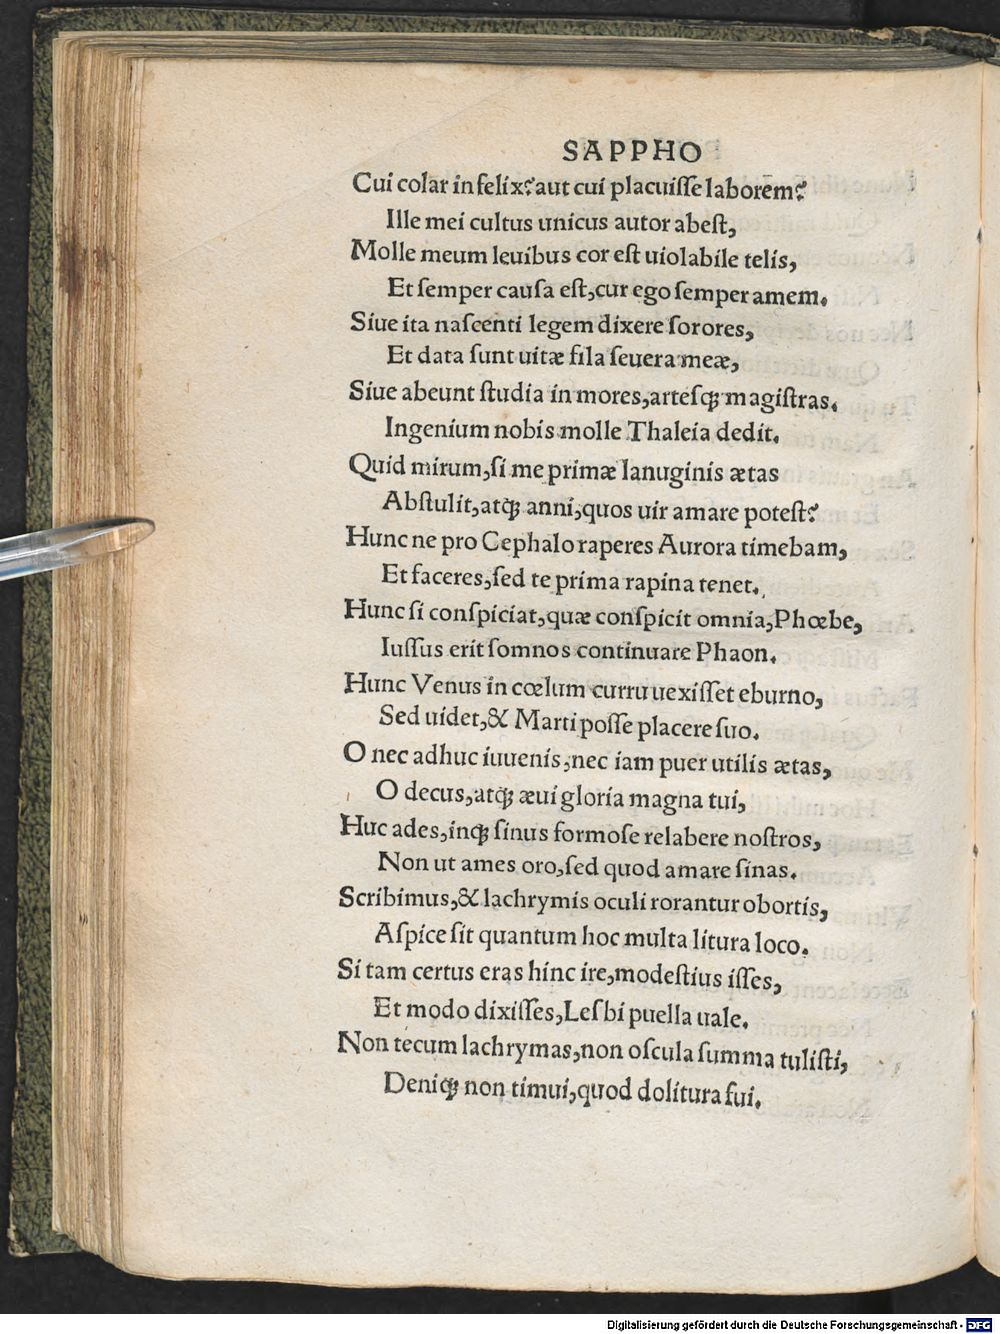 SAPPHO
Cui colar infelix? aut cui placuisse laborem?
Ille mei cultus unicus autor abest,
Molle meum leuibus cor est uiolabile telis,
Et semper causa est, cur ego semper amem.
Siue ita nascenti legem dixere sorores,
Et data sunt uitæ fila seuera meæ,
Siue abeunt studia in mores, artesqꝫ magistras.
Ingenium nobis molle Thaleia dedit.
Quid mirum, si me primæ lanuginis ætas
Abstulit, atqꝫ anni, quos uir amare potest?
Hunc ne pro Cephalo raperes Aurora timebam,
Et faceres, sed te prima rapina tenet.
Hunc si conspiciat, quæ conspicit omnia, Phœbe,
Iussus erit somnos continuare Phaon.
Hunc Venus in cœlum curru uexisset eburno,
Sed uidet, & Marti posse placere suo.
O nec adhuc iuuenis, nec iam puer utilis ætas,
O decus, atqꝫ æui gloria magna tui,
Huc ades, inqꝫ sinus formose relabere nostros,
Non ut ames oro, sed quod amare sinas.
Scribimus, & lachrymis oculi rorantur obortis,
Aspice sit quantum hoc multa litura loco.
Si tam certus eras hinc ire, modestius isses,
Et modo dixisses, Lesbi puella uale.
Non tecum lachrymas, non oscula summa tulisti,
Deniqꝫ non timui, quod dolitura fui.
Digitalisierung gefördert durch die Deutsche Forschungsgemeinschaft - DFG